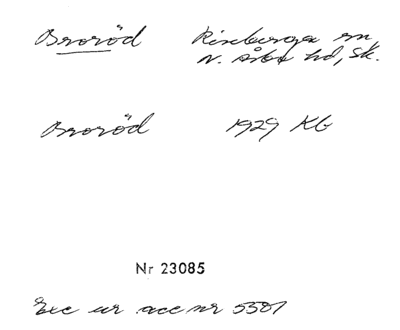 Broröd Riseberga sn,
N. Åsbo hd, Sk.
Broröd 1929 KG
Nr 23085
Exc ur acc nr 5587